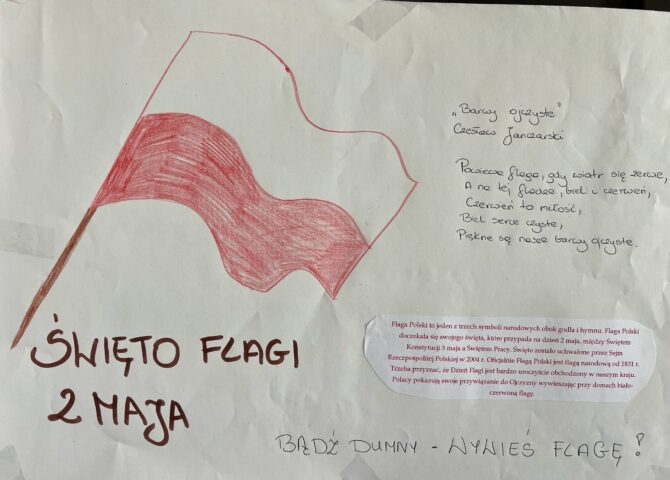 „Barwy ojczyste"
Czesław Janczarski
Powiewa flaga, gdy wiatr się zerwie,
A na tej fladze, biel i czerwień,
Czerwień to miłość,
Biel serce czyste,
Piękne są nasze barwy ojczyste.
Flaga Polski to jeden z trzech symboli narodowych obok godła i hymnu. Flaga Polski
doczekała się swojego święta, które przypada na dzień 2 maja, między Świętem
Konstytucji 3 maja a Świętem Pracy. Święto zostało uchwalone przez Sejm
Rzeczpospolitej Polskiej w 2004 r. Oficjalnie Flagą Polski jest flagą narodową od 1831 r.
Trzeba przyznać, że Dzień Flagi jest bardzo uroczyście obchodzony w naszym kraju.
Polacy pokazują swoje przywiązanie do Ojczyzny wywieszając przy domach biało-
czerwoną flagę.
ŚWIĘTO FLAGI
2 MAJA
BĄDŹ DUMNY - WYWIEŚ FLAGĘ!